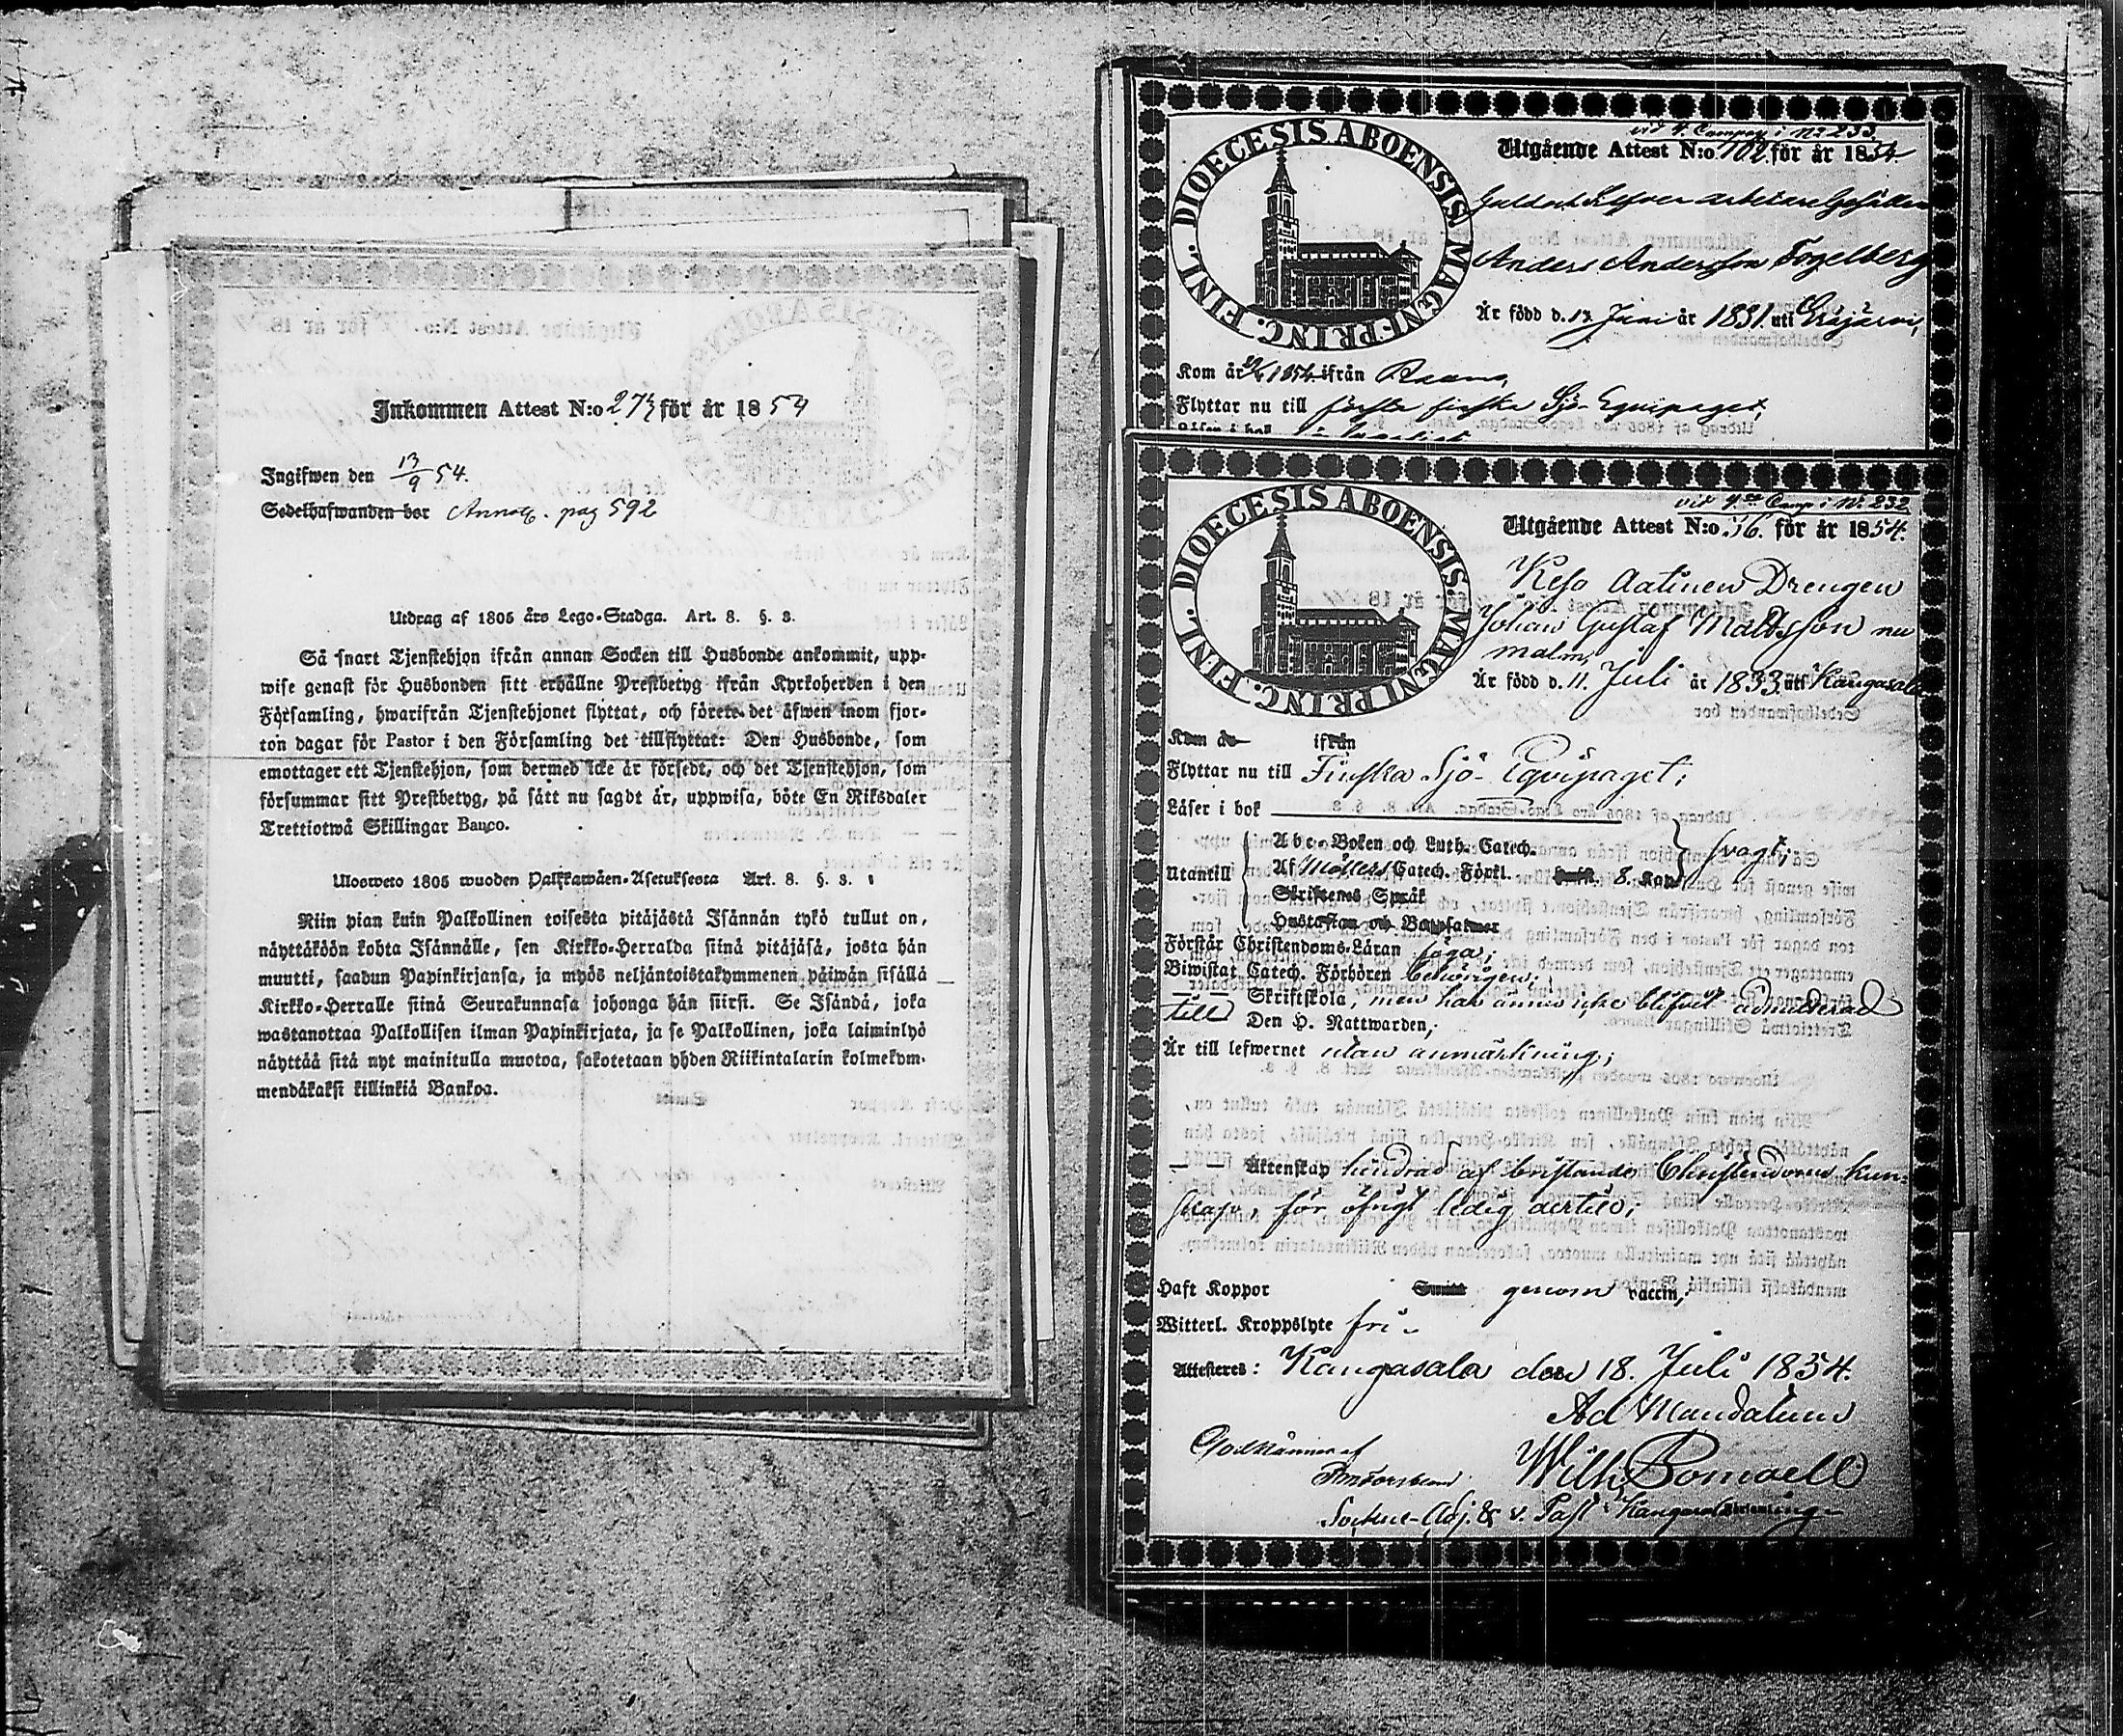 Inkommen Attest N:o 273 för år 1854
Ingifwen den 13/9 54.
Sedelhafwanden bor Annot. pag 592
Utdrag af 1805 års Lego-Stadga. Art. 8. §. 3.
Så snart Tjenstehjon ifrån annan Socken till Husbonde ankommit, upp-
wise genast för Husbonden sitt erhållne Prestbetyg ifrån Kyrkoherden i den
Församling, hwarifrån Tjenstehjonet flyttat, och förete det äfwen inom fjor-
ton dagar för Pastor i den Församling det tillflyttat: Den Husbonde, som
emottager ett Tjenstehjon, som dermed icke är försedt, och det Tjenstehjon, som
försummar sitt Prestbetyg, på sätt nu sagdt är, uppwisa, böte En Riksdaler
Trettiotwå Skillingar Banco.
Ulosweto 1805 wuoden Palkkawäen-Asetuksesta Art. 8. §. 3.
Niin pian kuin Palkollinen toisesta pitäjästä Isännän tykö tullut on,
näyttäköön kohta Isännälle, sen Kirkko-Herralda siinä pitäjäsä, josta hän
muutti, saadun Papinkirjansa, ja myös neljäntoistakymmenen päiwän sisällä
Kirkko-Herralle siinä Seurakunnasa johonga hän siirsi. Se Isändä, joka
wastanottaa Palkollisen ilman Papinkirjata, ja se Palkollinen, joka laiminlyö
näyttää sitä nyt mainitulla muotoa, sakotetaan yhden Riikintalarin kolmekym-
mendäkaksi killinkiä Bankoa.
DIOECESIS ABOENSIS. MAGNI PRINC. FINL.
vid 4. Compag i No 233
Utgående Attest N:o 102 för år 1854
Guld och Silfver arbetare Gesällen
Anders Andersson Fogelberg
Är född d. 13 Juni år 1831. uti
Kom år 1854 ifrån
Flyttar nu till första finska Sjö-Equipaget,
Läser i bok
DIOECESIS ABOENSIS. MAGNI PRINC. FINL.
vid 4de Comp i No 232
Utgående Attest N:o 56. för år 1854.
Keso Aatinen Drengen
Johan Gustaf Mattsson nu
malm,
Är född d. 11. Juli år 1833. uti Kangasala
Kom år ifrån
Flyttar nu till Finska Sjö-Equipaget;
Läser i bok
Abc-Boken och Luth. Catech.
Utantill Af Möllers Catech. Förkl. 8. Kap. svagt;
Skriftenes Språk
Hustaflan och Botpsalmer
Förstår Christendoms-Läran föga;
Biwistat Catech. Förhören behörigen;
— — Skriftskola, men har ännu icke blifvit admitterad
till Den H. Nattwarden;
Är till lefwernet utan anmärkning;
— — Äktenskap hindrad af bristande Christendoms kun-
skap, för öfrigt ledig dertill;
Haft Koppor genom vaccin,
Witterl. Kroppslyte fri.
Attesteras: Kangasala den 18. Juli 1854.
Ad Mandatum
Wilh. Bomdell
Godkännes af
Socken-Adj. & v. Past i Kangasala